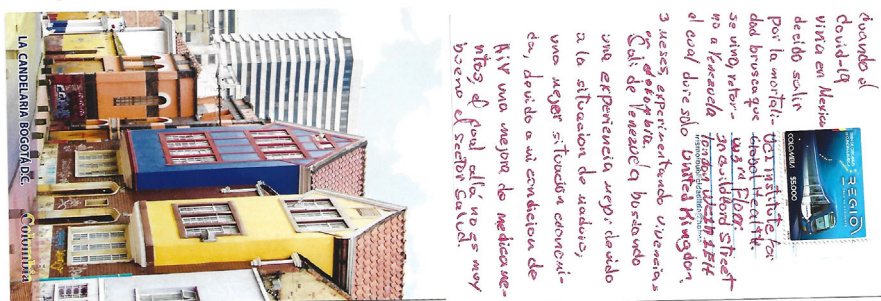 LA CANDELARIA BOGOTÁ D.C.
Colombia
Cuando el
Covid-19
vivia en Mexico
decido salir
por la mortali-
dad brusca que
se vivio, retor-
no a Venezuela
el cual dure solo
3 meses, experimentando vivencias
en Colombia.
Sali de Venezuela buscando
una experiencia mejor devido
a la situacion de maduro,
una mejor situacion economi-
ca, devido a mi condicion de
HIV una mejora de medicame-
ntos, el cual allá no es muy
bueno el sector salud.
UCL institute for
Global Health
Floor
30 Guildford Street
London WC1N 1EH
United Kingdom
REGIO
COLOMBIA
$5.000